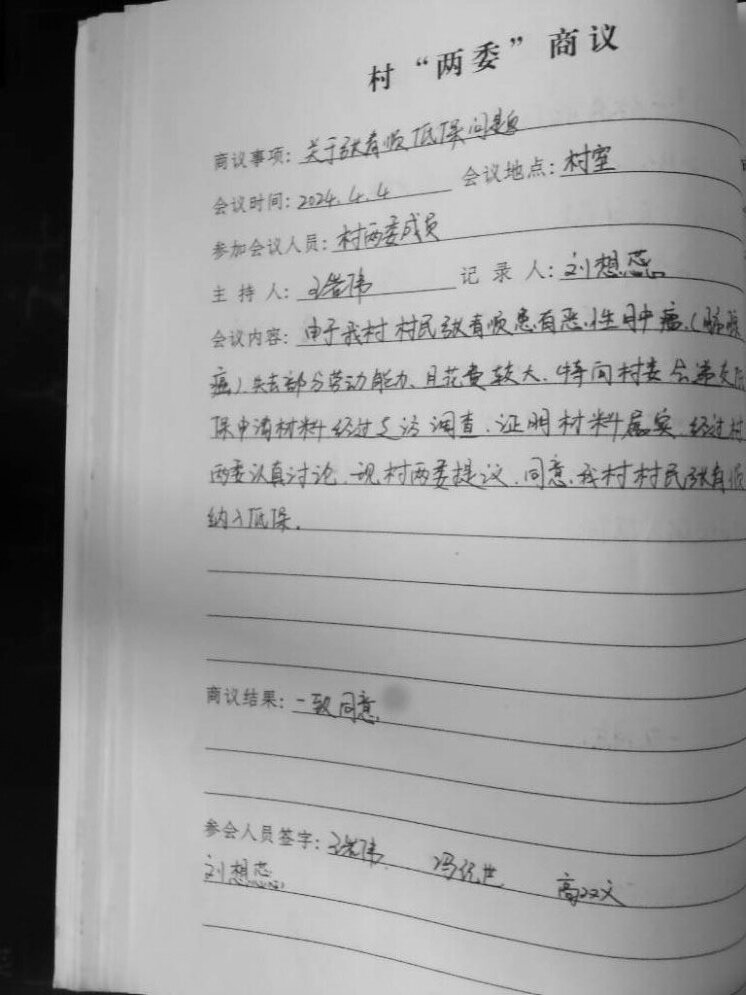 村“两委”商议
商议事项：关于张有顺低保问题
会议时间：2024.4.4 会议地点：村室
参加会议人员：村两委成员
主持人： 记录人：刘想蕊
会议内容：由于我村村民张有顺患有恶性肿瘤（膀胱
癌）失去部分劳动能力、月花费较大、特向村委会递交低
保申请材料经过走访调查、证明材料属实、经过村
两委认真讨论、现村两委提议、同意、我村村民张有顺
纳入低保.
商议结果：一致同意
参会人员签字： 高双文
刘想蕊